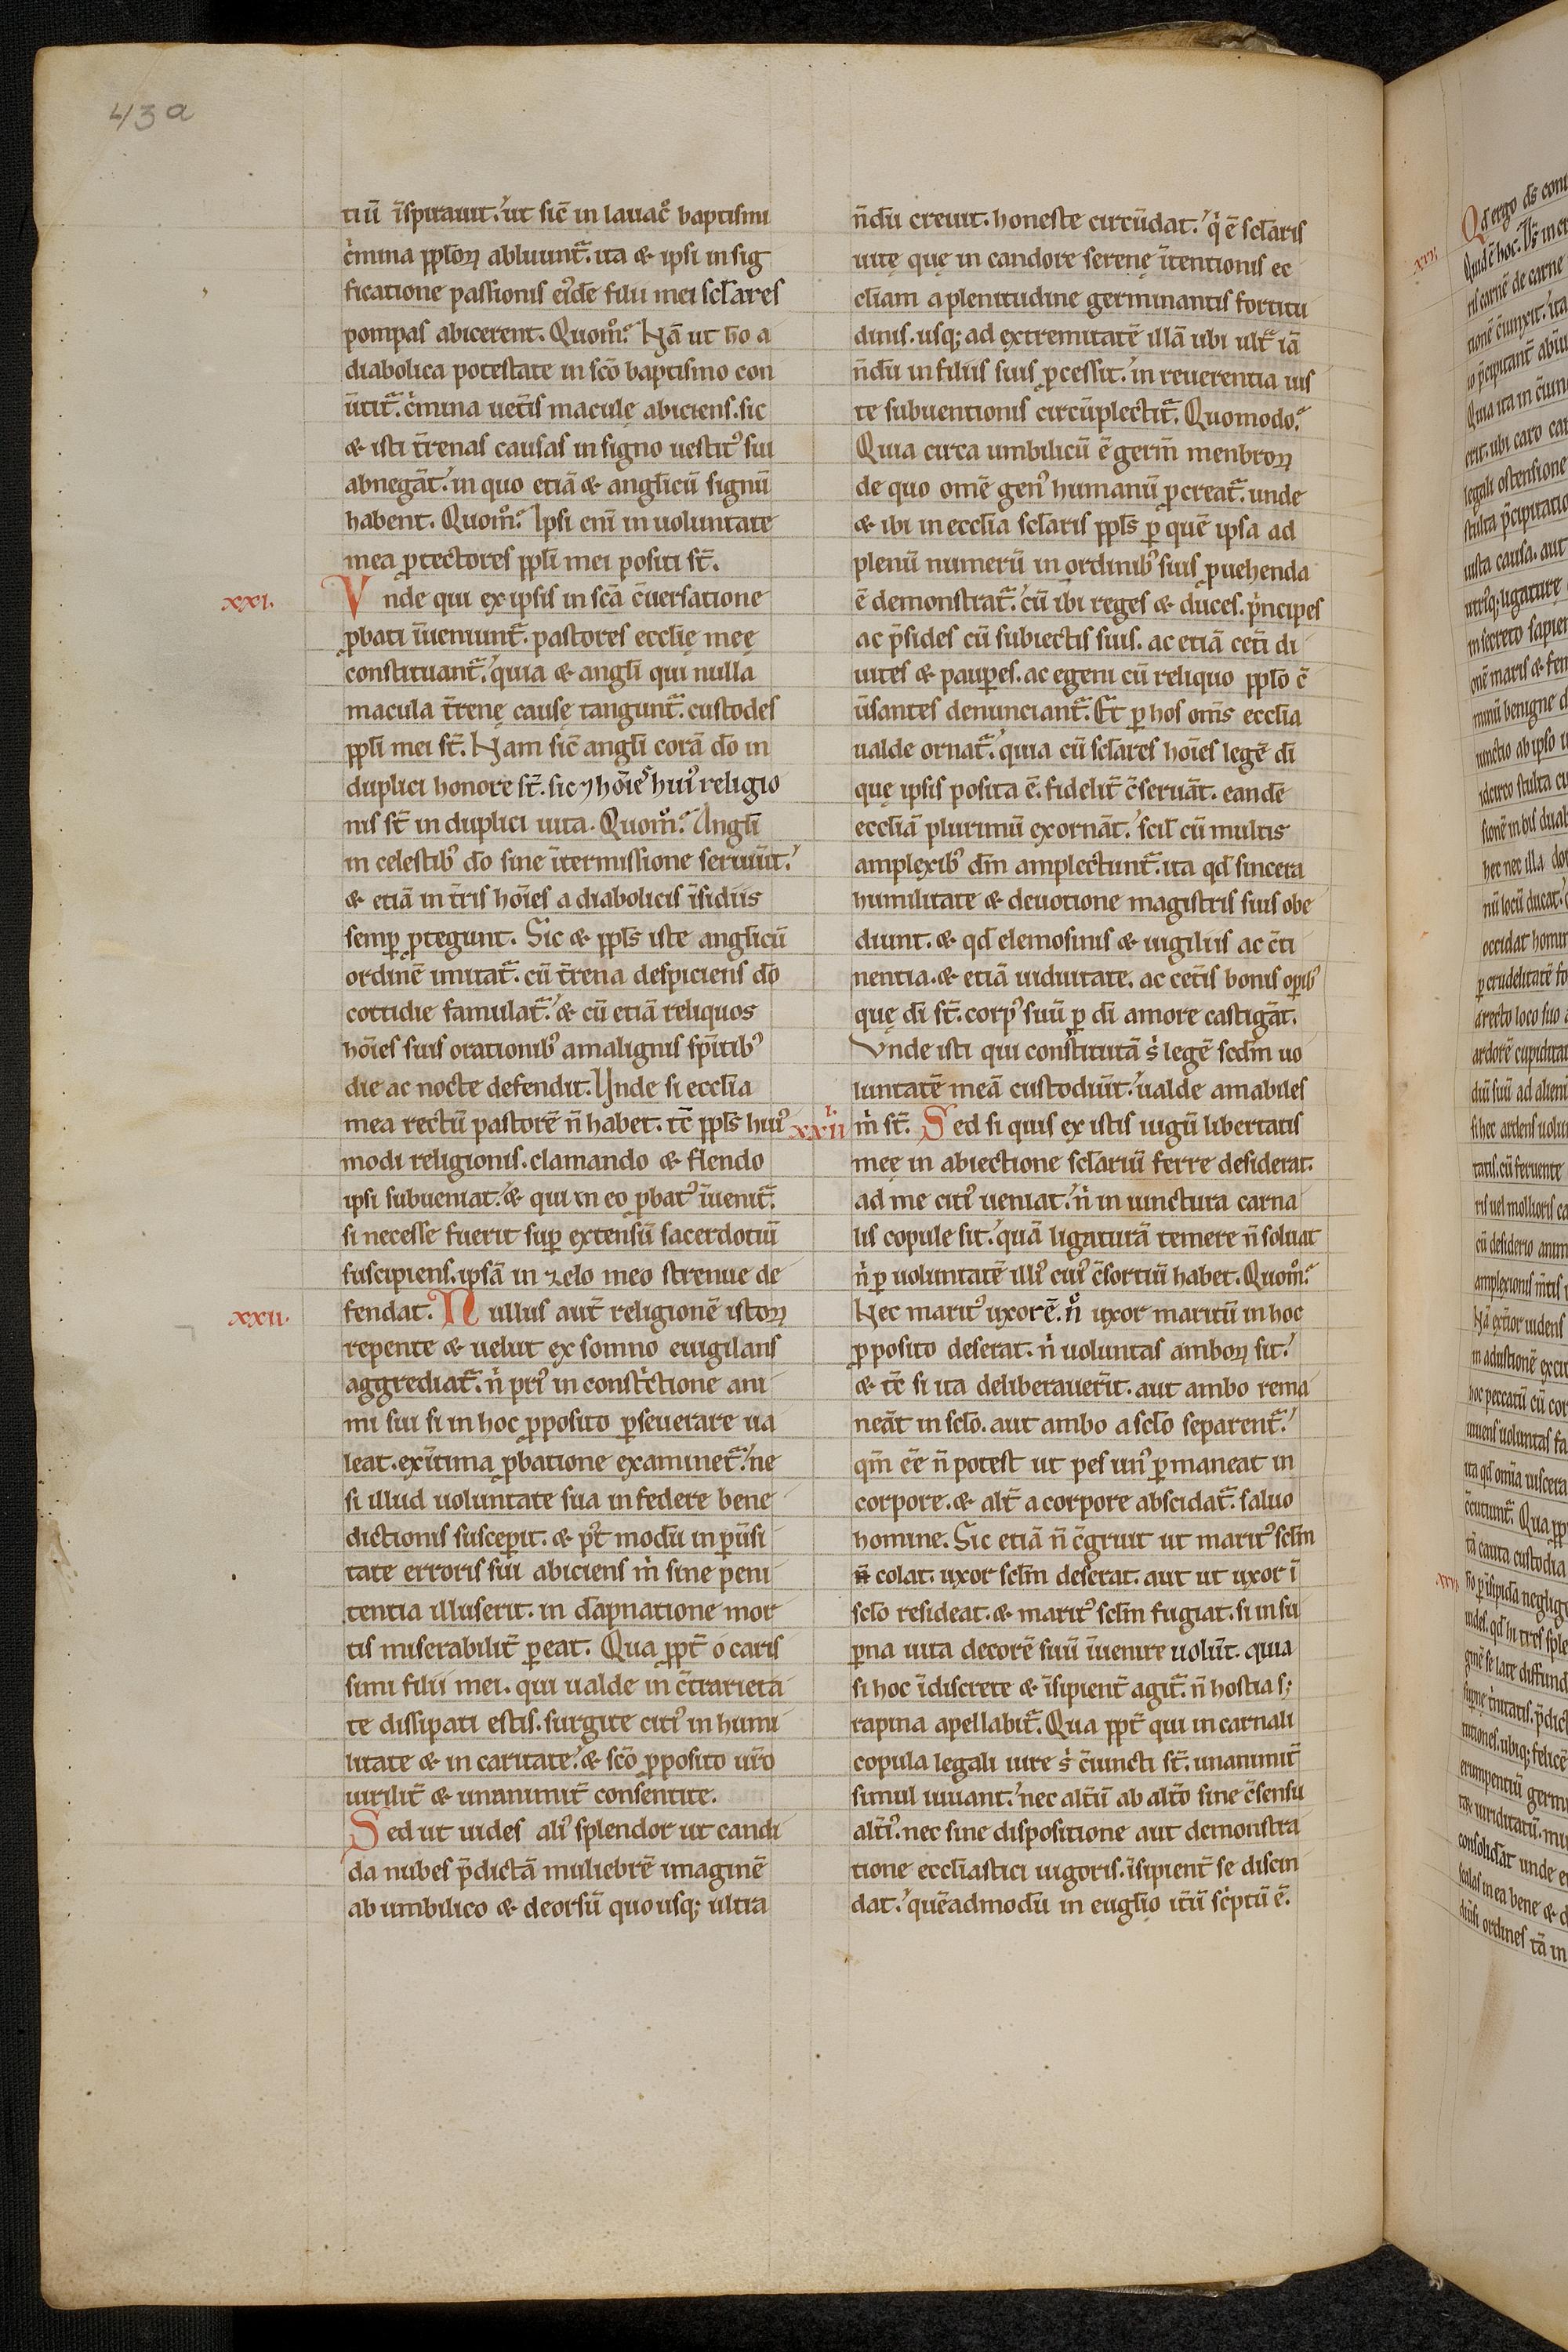 43a
tiū īspirauit. ut sic̄ in lauac̊ baptismi
c̓mina pplōꝝ abluunt᷑. ita & ipsi in sig
ficatione passionis ei᷒dē filii mei sclāres
pompas abicerent. Quom̊. Nā ut hō a
diabolica potestate in sc̄o baptismo con
ūtit᷑. c̓mina uet̄is maculę abiciens. sic
& isti t̄renas causas in signo uestit᷒ sui
abnegāt. in quo etiā & anglicū signū
habent. Quom̊. Ipsi eni᷒ in uoluntate
mea ꝓtectores pplī mei positi st̄.
xxi. Vnde qui ex ipsis in sc̄a c̄uersatione
ꝓbati īueniunt᷑. pastores eccl̄ię meę
constituant᷑. quia & anglī qui nulla
macula t̄renę cause tangunt᷑. custodes
pplī mei st̄. Nam sic̄ anglī corā dō in
duplici honore st̄. sic ⁊ hōies hui᷒ religio
nis st̄ in duplici uita. Quom̊. Anglī
in celestib᷒ dō sine īt̄ermissione seruiūt.
& etiā in t̄ris hōies a diabolicis īsidiis
semꝑ ꝓtegunt. Sic & ppls̄ iste anglicū
ordinē imitat᷑. cū t̄rena despiciens dō
cottidie famulat᷑. & cū etiā reliquos
hōies suis orationib᷒ a malignis spīritib᷒
die ac nocte defendit. Unde si eccl̄ia
mea rectū pastorē n̄ habet. tc̄ ppls̄ hui᷒
modi religionis. clamando & flendo
ipsi subueniat. & qui in eo ꝓbat᷒ īuenit᷑.
si necesse fuerit suꝑ extensū sacerdotiū
suscipiens. ipsā in zelo meo strenue de
xxii. fendat. Nullus aut̄ religionē istoꝝ
repente & uelut ex somno euigilans
aggrediat᷑. n̓ pri᷒ in const̓ctione ani
mi sui si in hoc ꝓposito ꝑseuerare ua
leat. ex īt̄ima ꝓbatione examinet᷑. ne
si illud uoluntate sua in federe bene
dictionis susceꝑit. & p᷒t modū in ꝑūsi
tate erroris sui abiciens m̓ sine peni
tentia illuserit. in dāpnatione mor
tis miserabilit̄ ꝑeat. Qua ꝓpt̄ o caris
simi filii mei. qui ualde in c̄trarieta
te dissipati estis. surgite citi᷒ in humi
litate & in caritate. & sc̄o ꝓposito ur̄o
uirilit̄ & unanimit̄ consentite.
Sed ut uides ali᷒ splendor ut candi
da nubes p̄dictā muliebrē imaginē
ab umbilico & deorsū quousq; ultra
n̄dū creuit. honeste circūdat. q̓ ē sclāris
uitę quę in candore serenę īt̄entionis ec
cl̄iam a plenitudine germinantis fortitu
dinis. usq; ad extremitatē illā ubi ult᷑ iā
n̄dū in filiis suis ꝓcessit. in reuerentia ius
te subuentionis circūplectit᷑. Quomodo.
Quia circa umbilicū ē germ̄ menbroꝝ
de quo omē gen᷒ humanū ꝓcreat᷑. unde
& ibi in eccl̄ia sclāris ppls̄ ꝑ quē ipsa ad
plenū numerū in ordinib᷒ suis ꝓuehenda
ē demonstrat᷑. cū ibi reges & duces. p̓ncipes
ac p̄sides cū subiectis suis. ac etiā cet̄i di
uites & pauꝑes. ac egeni cū reliquo pplō c̄
ūsantes denunciant᷑. Et ꝑ hos om̄s eccl̄ia
ualde ornat᷑. quia cū sclāres hōies legē dī
quę ipsis posita ē. fidelit̄ c̄seruāt. eandē
eccl̄iā plurimū exornāt. scil̄ cū multis
amplexib᷒ dm̄ amplectunt᷑. ita qd̄ sincera
humilitate & deuotione magistris suis obe
diunt. & qd̄ elemosinis & uigiliis ac c̄ti
nentia. & etiā uiduitate. ac cet̄is bonis oꝑib᷒
quę dī st̄. corp᷒ suū ꝑ dī amore castigāt.
Vnde isti qui constitutā s̓ legē scdm̄ uo
luntatē meā custodiūt. ualde amabiles
xxii i. m̓ st̄. Sed si quis ex istis iugū libertatis
meę in abiectione sclāriū ferre desiderat.
ad me citi᷒ ueniat. n̓ in iunctura carna
lis copule sit. quā ligaturā temere n̄ soluat
n̓ ꝑ uoluntatē illi᷒ cui᷒ c̄sortiū habet. Quom̊.
Nec marit᷒ uxorē. n̊ uxor maritū in hoc
ꝓposito deserat. n̓ uoluntas amboꝝ sit.
& tc̄ si ita deliberauerīt. aut ambo rema
neāt in sclō. aut ambo a sclō separent᷑.
qm̄ eē n̄ potest ut pes un᷒ ꝑmaneat in
corpore. & alt̄ a corpore abscidat᷑. saluo
homine. Sic etiā n̄ c̄gruit ut marit᷒ sclm̄
n̄ colat. uxor sclm̄ deserat. aut ut uxor ī
sclō resideat. & marit᷒ sclm̄ fugiat. si in su
ꝑna uita decorē suū īuenire uolūt. quia
si hoc īdiscrete & īsipient̄ agit᷑. n̄ hostia s;
rapina apellabit᷑. Qua ꝓpt̄ qui in carnali
copula legali iure s̓ c̄iuncti st̄. unanimit̄
simul uiuant. nec alt̄ū ab alt̄o sine c̄sensu
alt̄i᷒. nec sine dispositione aut demonstra
tione eccl̄iastici uigoris. īsipient̄ se discin
dat. quēadmodū in euglīo it̄ū sc̓ptū ē.